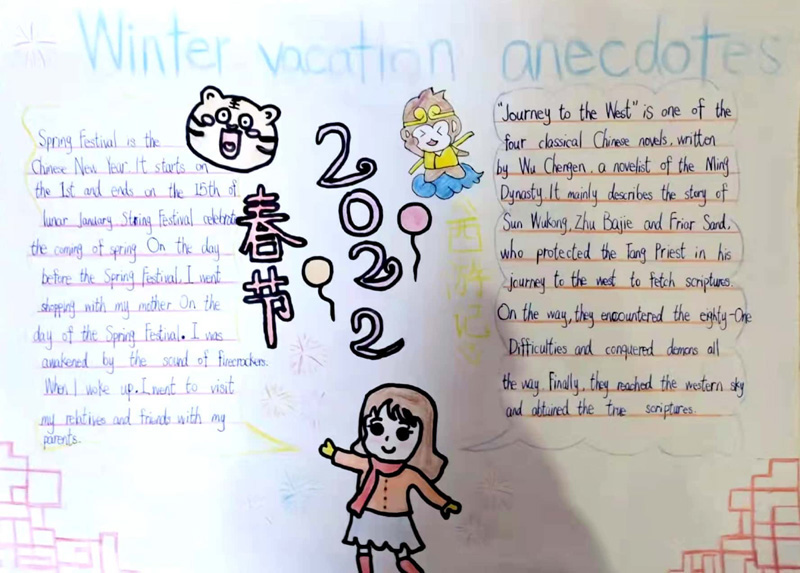 Winter vacation anecdotes
Spring Festival is the
Chinese New Year. It starts on
the 1st and ends on the 15th of
lunar January. String Festival celebrate
the coming of spring On the day
before the Spring Festival. I went
shopping with my mother On the
day of the Spring Festival. I was
awakened by the sound of firecrackers.
When I woke up. I went to visit
my relatives and friends with my
parents.
春节
2022
西游记
"Journey to the West" is one of the
four classical Chinese novels, written
by Wu Chengen, a novelist of the Ming
Dynasty. It mainly describes the story of
Sun Wukong, Zhu Bajie and Friar Sand,
who protected the Tang Priest in his
journey to the west to fetch scriptures.
On the way, they encountered the eighty-One
Difficulties and conquered demons all
the way. Finally, they reached the western sky
and obtained the true scriptures.